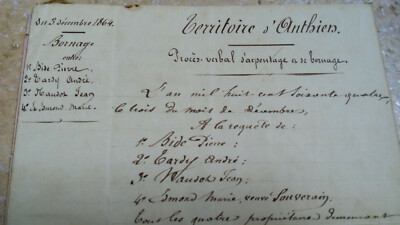 du 3 décembre 1864.
Bornage
entre
1º Bide Pierre
2º Tardy André
3º Naudot Jean
4º Esmond Marie
Territoire d'Anthien.
Procès-verbal d'arpentage et de bornage.
L'an mil huit cent soixante quatre,
le trois du mois de décembre,
A la requête de:
1º Bide Pierre;
2º Tardy André;
3º Naudot Jean;
4º Esmond Marie, veuve Souverain.
Tous les quatre propriétaires demeurant